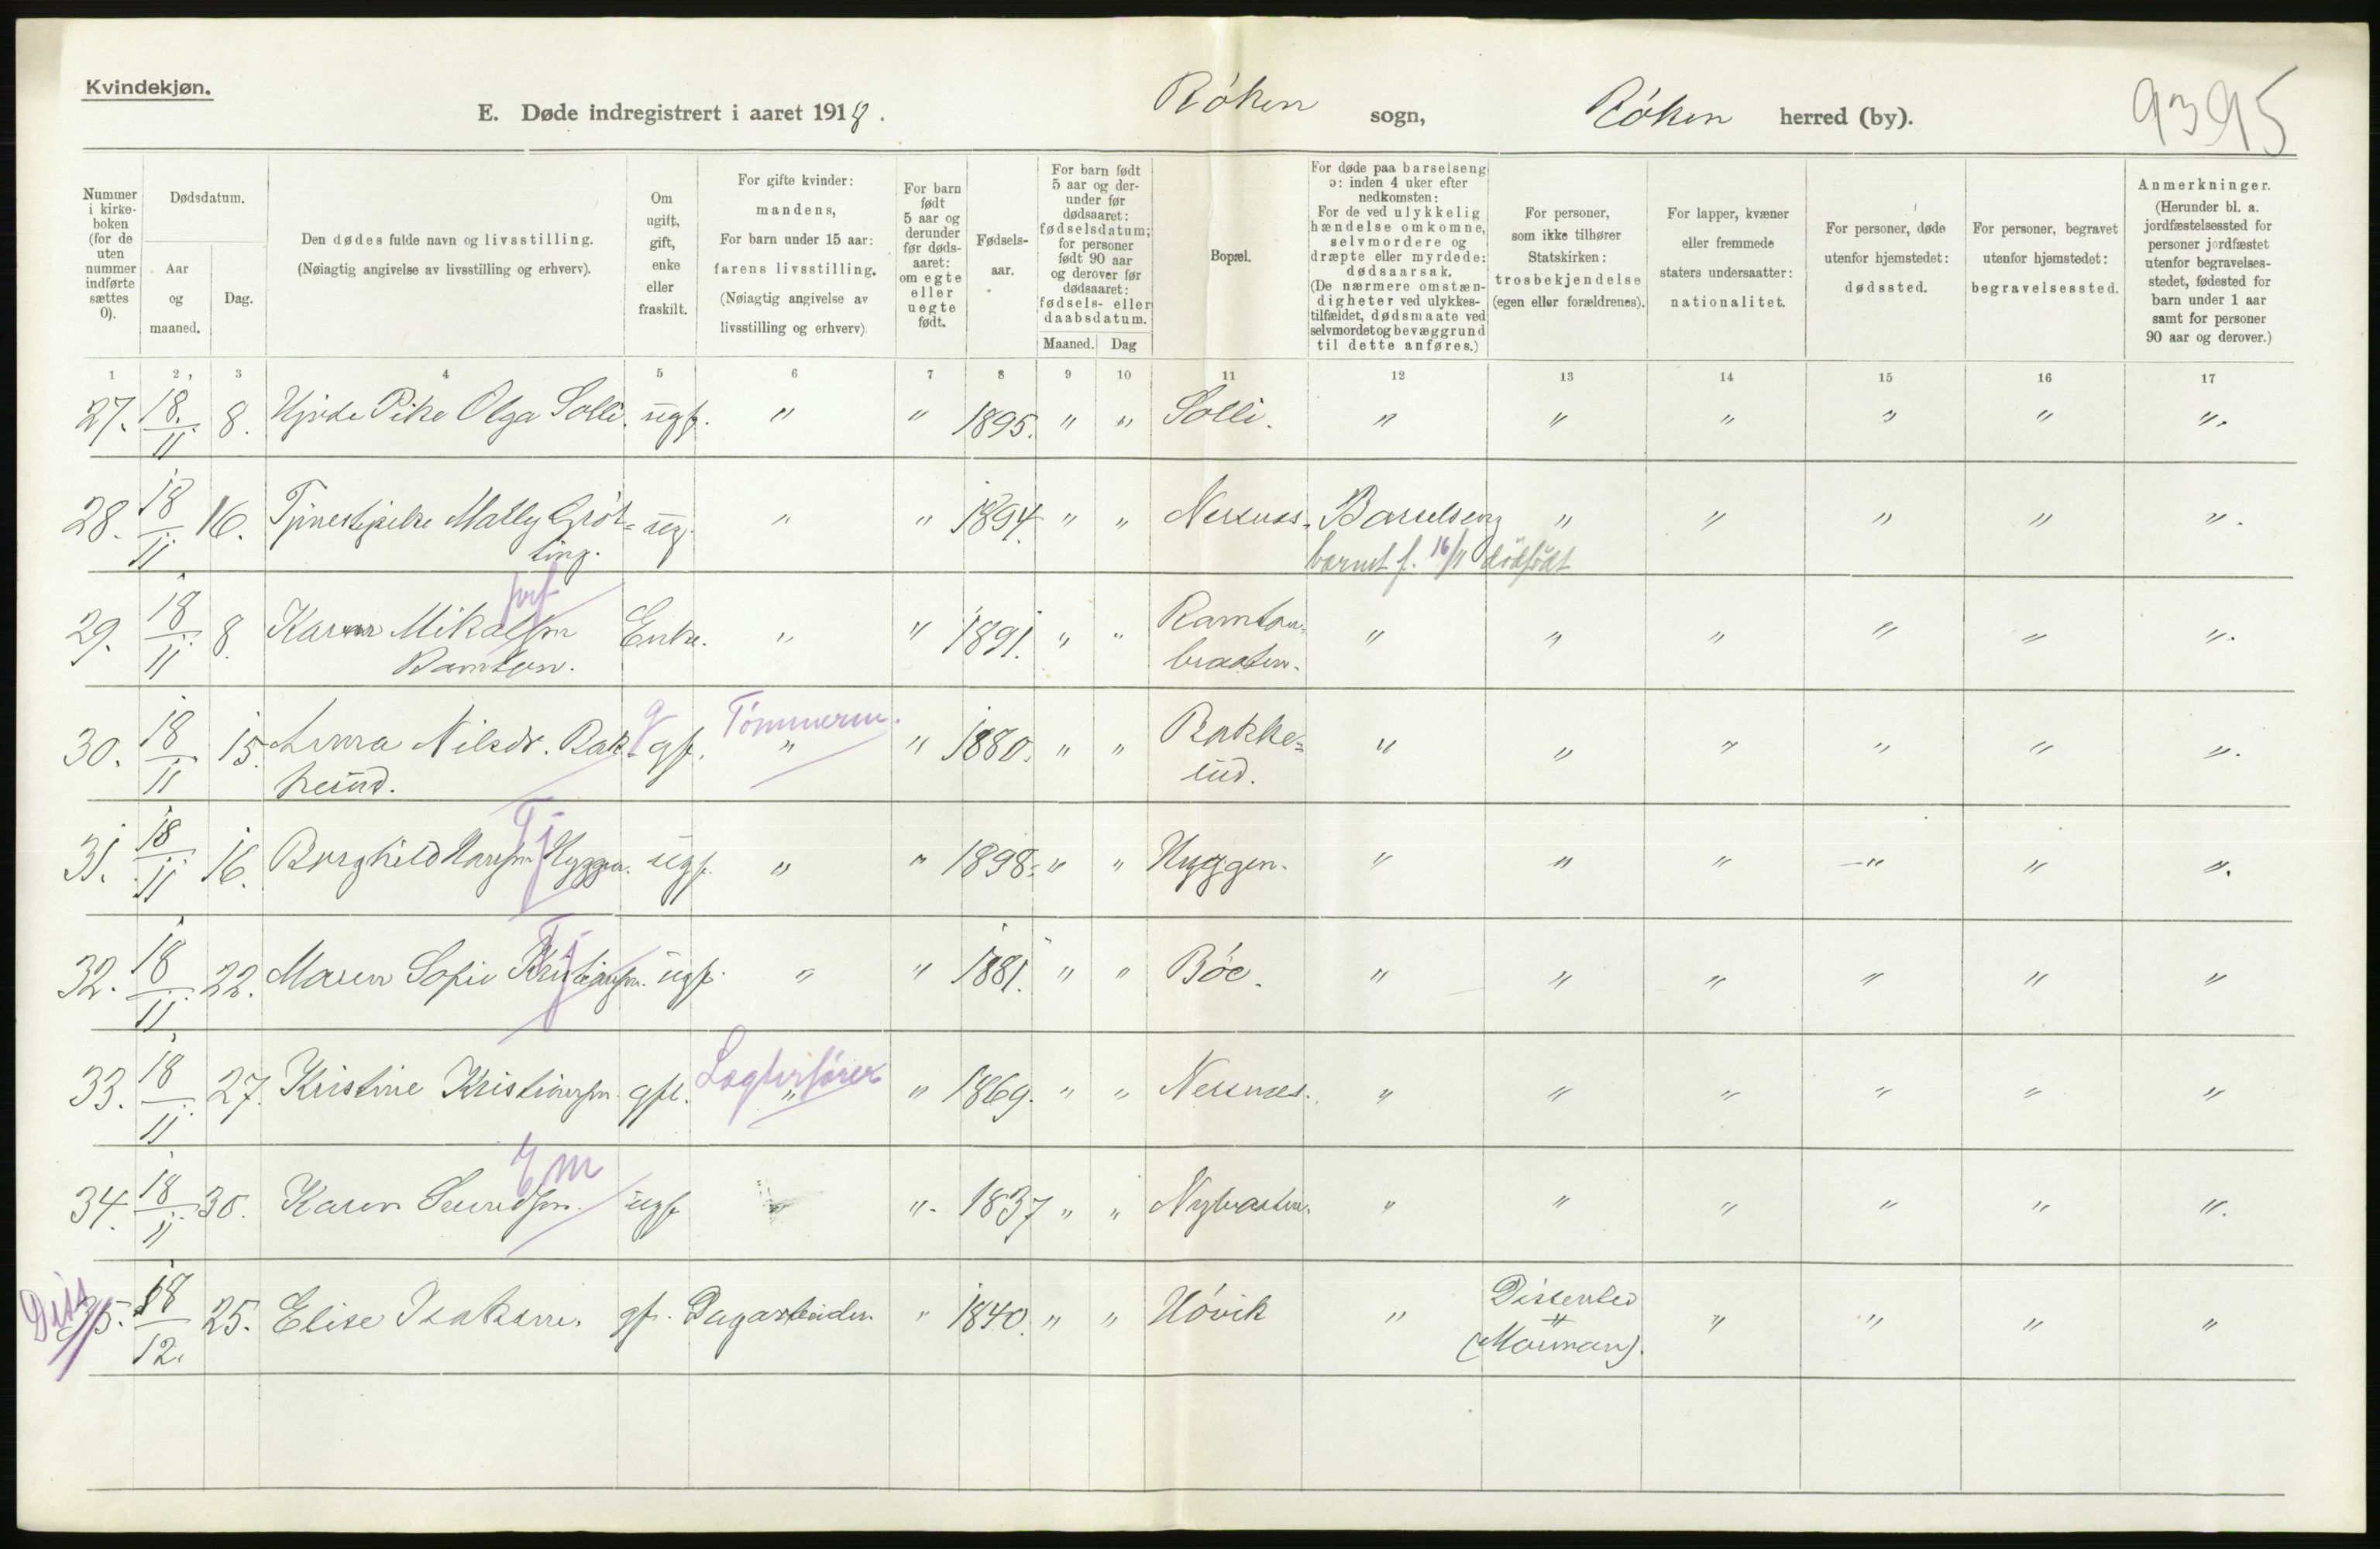 Kvindekjøn.
E. Døde indregistrert i aaret 1918.
Røken sogn,
Røken herred (by).
9395
Nummer i kirkeboken (for de uten nummer indførte sættes 0).
Dødsdatum.
Aar og maaned.
Dag.
Den dødes fulde navn og livsstilling.
(Nøiagtig angivelse av livsstilling og erhverv).
Om ugift, gift, enke eller fraskilt.
For gifte kvinder: mandens,
For barn under 15 aar: farens livsstilling.
(Nøiagtig angivelse av livsstilling og erhverv)
For barn født 5 aar og derunder før dødsaaret: om egte eller uegte født.
Fødselsaar.
For barn født 5 aar og derunder før dødsaaret: fødselsdatum; for personer født 90 aar og derover før dødsaaret: fødsels- eller daabsdatum.
Maaned. Dag
Bopæl.
For døde paa barselseng ɔ: inden 4 uker efter nedkomsten:
For de ved ulykkelig hændelse omkomne, selvmordere og dræpte eller myrdede: dødsaarsak.
(De nærmere omstændigheter ved ulykkestilfældet, dødsmaate ved selvmordet og bevæggrund til dette anføres.)
For personer, som ikke tilhører Statskirken: trosbekjendelse (egen eller forældrenes).
For lapper, kvæner eller fremmede staters undersaatter: nationalitet.
For personer, døde utenfor hjemstedet: dødssted.
For personer, begravet utenfor hjemstedet: begravelsessted.
Anmerkninger.
(Herunder bl. a. jordfæstelsessted for personer jordfæstet utenfor begravelsesstedet, fødested for barn under 1 aar samt for personer 90 aar og derover.)
1 2 3 4 5 6 7 8 9 10 11 12 13 14 15 16 17
27. 18./11 8. Pike Olga Solli. ugf. " " 1895. " " Solli. " " " " " ".
28. 18/11 16. Mally Grøt= ug. " " 1894. " " Nersnes. Barselseng " " " " ".
ting. barnet f. 16/11 dødfødt
29. 18/11 8. Karen Mikalsen Enke. " " 1891. " " Ramton= " " " " " ".
Ramton. braaten.
30. 18/11 15. Anna Nilsdr. Bak= g gf. Tømmerm. " " 1880. " " Bakke= " " " " " ".
keund. und.
Tj
31. 18/11 16. Borghild Hansen Hyggen. ugf. " " 1898. " " Hyggen. " " " " " ".
Tj
32. 18/11 22. Maren Sofie Kristiansen. ugf. " " 1881. " " Bøe. " " " " " "
33. 18/11 27. Kristine Kristiansen gft. " " 1869. " " Nersnes. " " " " " "
34. 18/11 30. Karen ugf " 1837 " " Nybraaten. " " " " " ".
Diss
35. 18/12. 25. Elise Isaksen. gf. Dagarbeider " 1840. " " Høvik " Dissenter " " " "
(Morman).